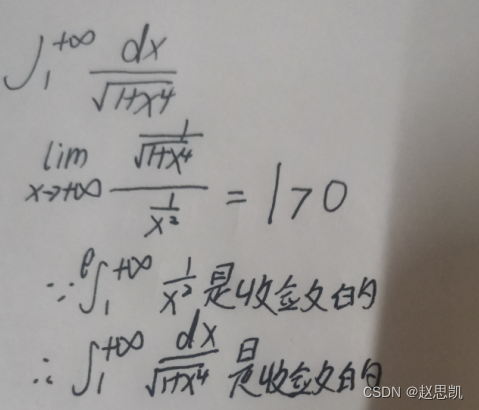 ∫₁^{+∞} dx/√(1+x⁴)
lim_{x→+∞} (1/√(1+x⁴))/(1/x²) = 1 > 0
∵ ∫₁^{+∞} 1/x² 是收敛的
∴ ∫₁^{+∞} dx/√(1+x⁴) 是收敛的
CSDN @赵思凯